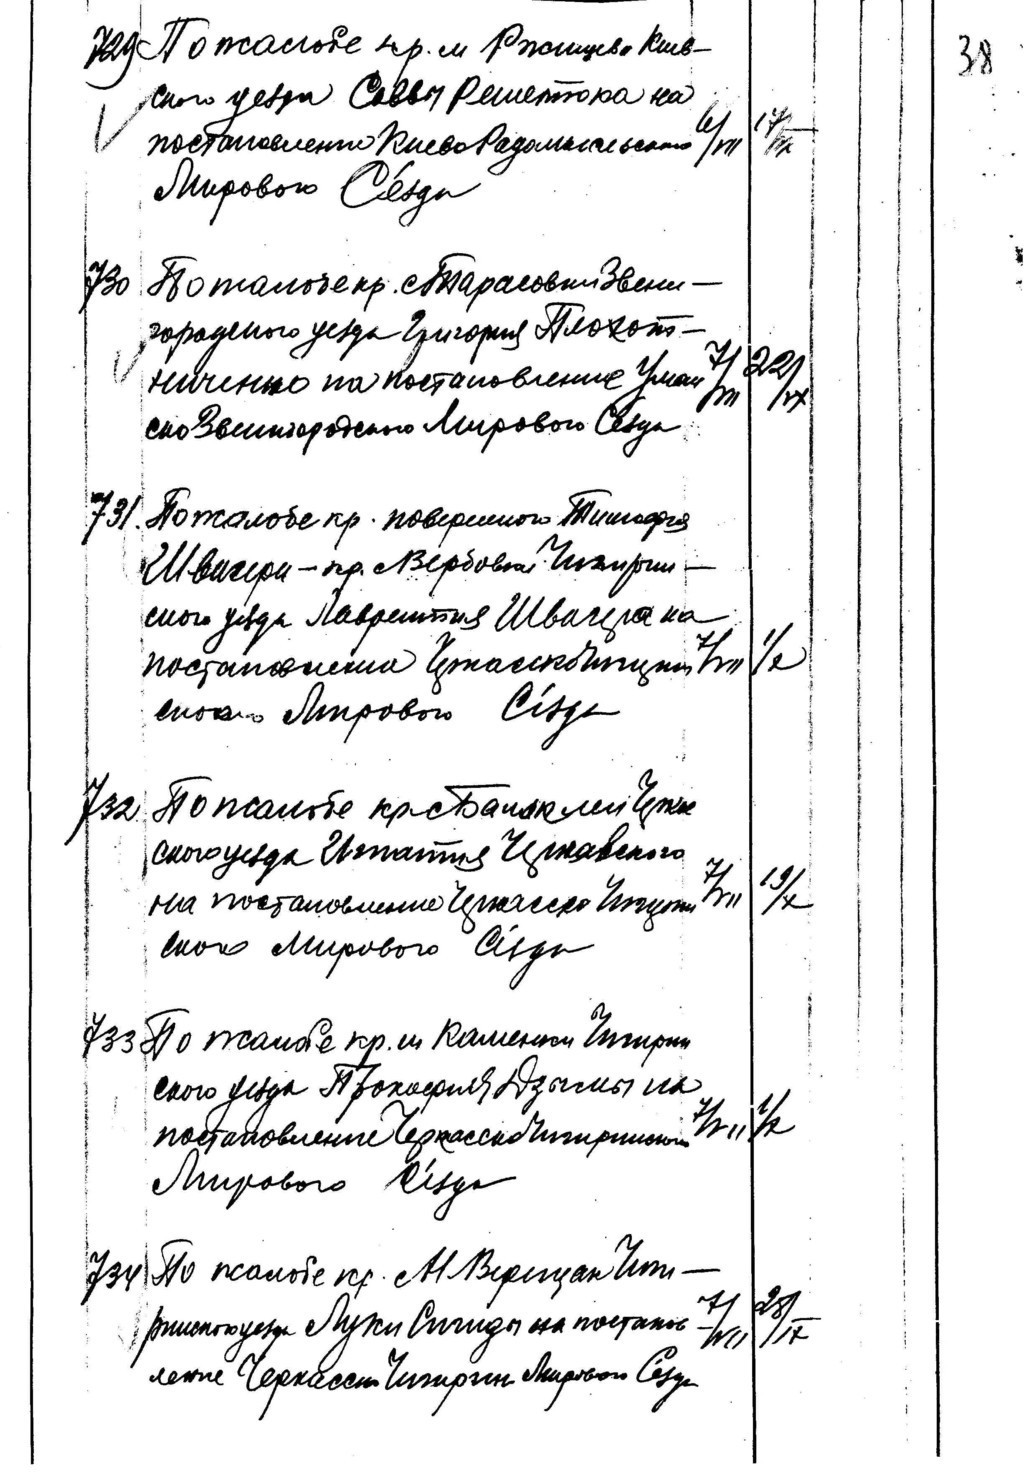 38
729 По жалобе кр. м Ржищева Киев-
ского уезда Саввы Решетюка на
постановление Киево Радомысльского 6/VII 17/IX
Мирового Сезда
730 По жалобе кр. с Тарасовки Звени-
городского уезда Григория Плохот-
ниченко на постановление Уман 7/VII 22/IX
ско Звенигородского Мирового Сезда
731. По жалобе кр. поверенного Тимофея
Швагера - кр. с Вербовки Чигирин-
ского уезда Лаврентия Швагера на
постановление Черкасско Чигирин 7/VII 1/X
ского Мирового Сізда
732 По жалобе кр с Балаклеи Черкас
ского уезда Игнатия Чернявского
на постановление Черкасско Чигирин 7/VII 19/X
ского Мирового Сізда
733 По жалобе кр. м Каменки Чигирин
ского уезда Прокофия Дзымы на
постановление Черкасско Чигиринского 7/VII 1/X
Мирового Сізда
734 По жалобе кр. с М Верещак Чиги-
ринского уезда Луки Сигиды на постанов 7/VII 28/IX
ление Черкасско Чигирин Мирового Сезда